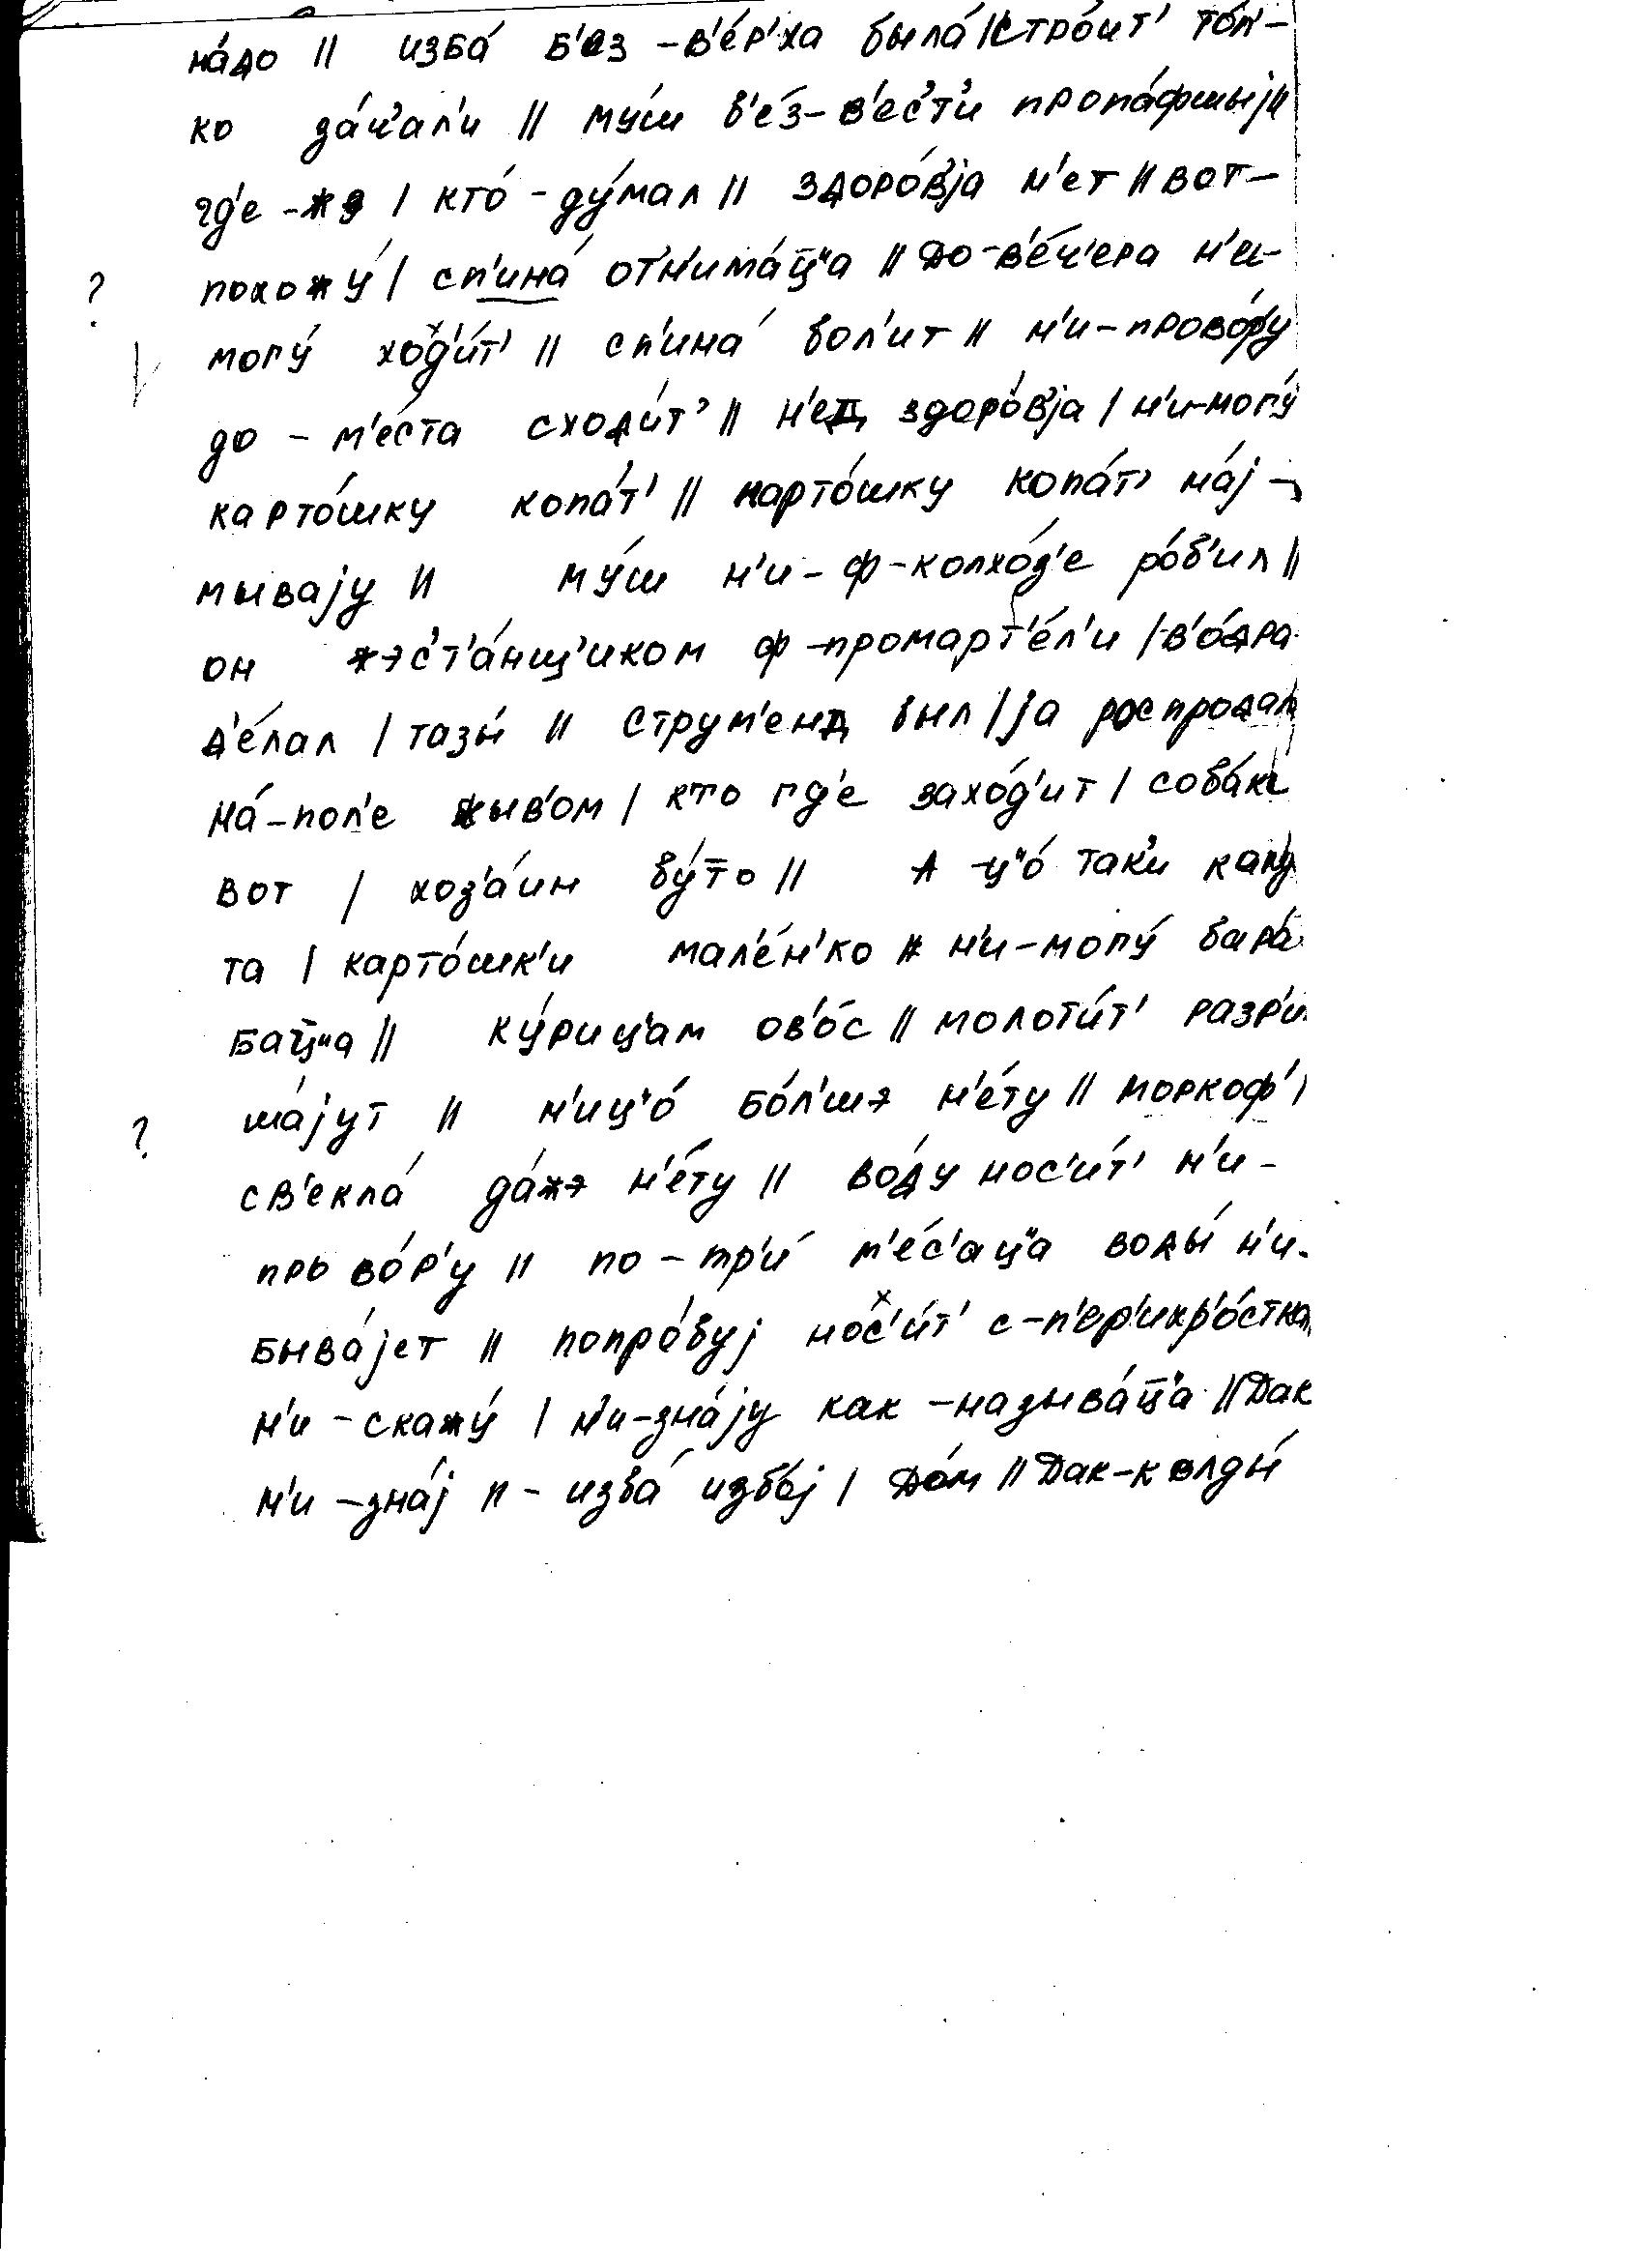 на́до // изба́ б'ез-в'е́р'ха была́ // стро́ит' то́л'-
ко за́ч'ал'и // му́ш б'е́з-в'ес'т'и пропа́фшыј //
гд'е-жэ / кто́-ду́мал // здоро́в'ја н'ет // вот-
? похожу́ / сп'ина́ отн'има́ц̅"а // до-в'е́ч'ера н'и-
могу́ ход'и́т' // сп'ина́ бол'ит // н'и-прово́р'у
до-м'е́ста сход'и́т' // н'ед здоро́в'ја / н'и-могу́
карто́шку копа́т' // карто́шку копа́т' на́ј-
мывају // му́ш н'и-ф-колхо́з'е ро́б'ил //
он жэс'т'а́нщ'иком ф-промарт'е́л'и / в'о́дра
д'е́лал / тазы́ // струм'енд был / ја роспродала
на́-пол'е жыв'ом / кто гд'е захо́д'ит / соба́ка
вот / хоз'а́ин бу́то // А ц"о́ так'и капу́
та / карто́шк'и мал'е́н'ко // н'и-могу́ бара́
бац̅"а // ку́риц'ам ов'о́с // молот'и́т' разр'и
ша́јут // н'иц"о́ бо́л'шэ н'е́ту // моркоф' /
? св'екла́ да́жэ н'е́ту // во́ду нос'и́т' н'и-
прово́р'у // по-тр'и́ м'е́с'ац"а воды́ н'и-
быва́јет // попро́буј нос'и́т' с-п'ер'ихр'о́стка
н'и-скажу́ / н'и-зна́ју как-называ́ц̅"а // Дак
н'и-зна́ј п-изба́ избо́ј / До́м // Дак-колды́